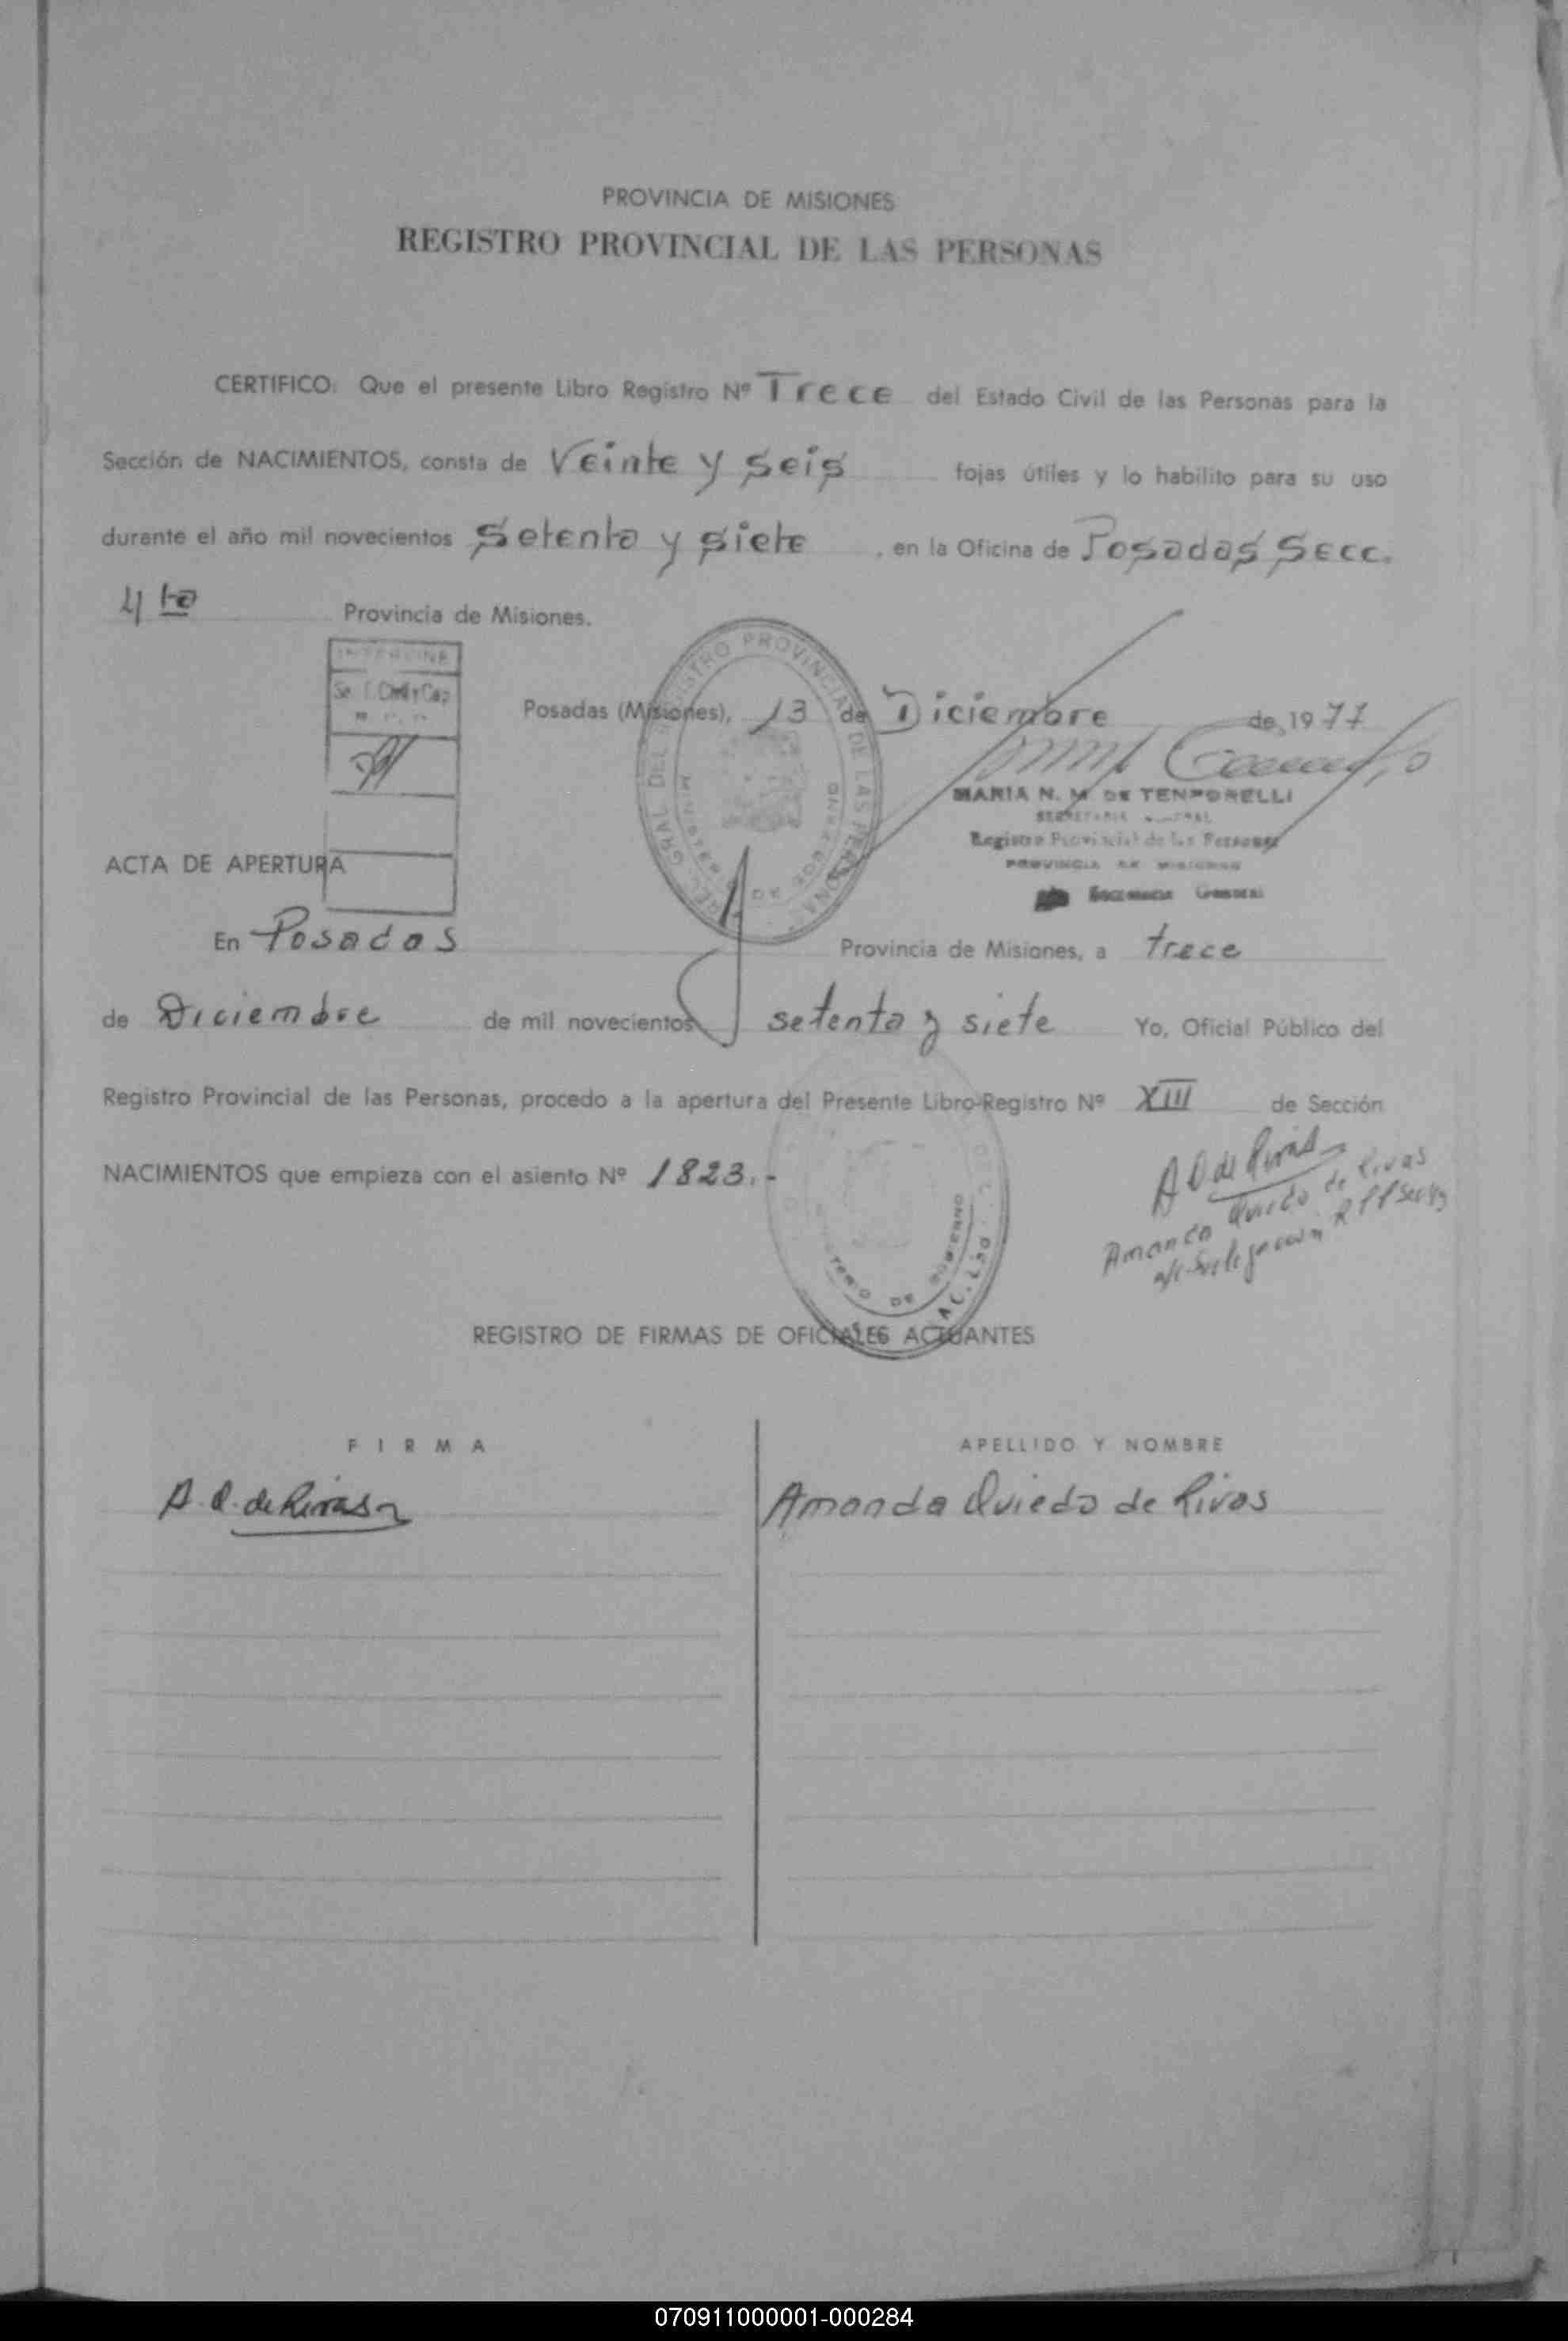 PROVINCIA DE MISIONES
REGISTRO PROVINCIAL DE LAS PERSONAS
CERTIFICO: Que el presente Libro Registro Nº Trece del Estado Civil de las Personas para la
Sección de NACIMIENTOS, consta de Veinte y Seis fojas útiles y lo habilito para su uso
durante el año mil novecientos Setenta y Siete, en la Oficina de Posadas Secc.
4ta Provincia de Misiones.
INTERVINE
Posadas (Misiones), 13 de Diciembre de 1977
MARIA N. M. DE TEMPORELLI
Registro Provincial de las Personas
PROVINCIA DE MISIONES
Secretaria General
ACTA DE APERTURA
En Posadas Provincia de Misiones, a trece
de Diciembre de mil novecientos setenta y siete Yo, Oficial Público del
Registro Provincial de las Personas, procedo a la apertura del Presente Libro-Registro Nº XIII de Sección
NACIMIENTOS que empieza con el asiento Nº 1823.-
A O de Rivas
Amanda Oviedo de Rivas
REGISTRO DE FIRMAS DE OFICIALES ACTUANTES
FIRMA APELLIDO Y NOMBRE
A. O. de Rivas Amanda Oviedo de Rivas
070911000001-000284